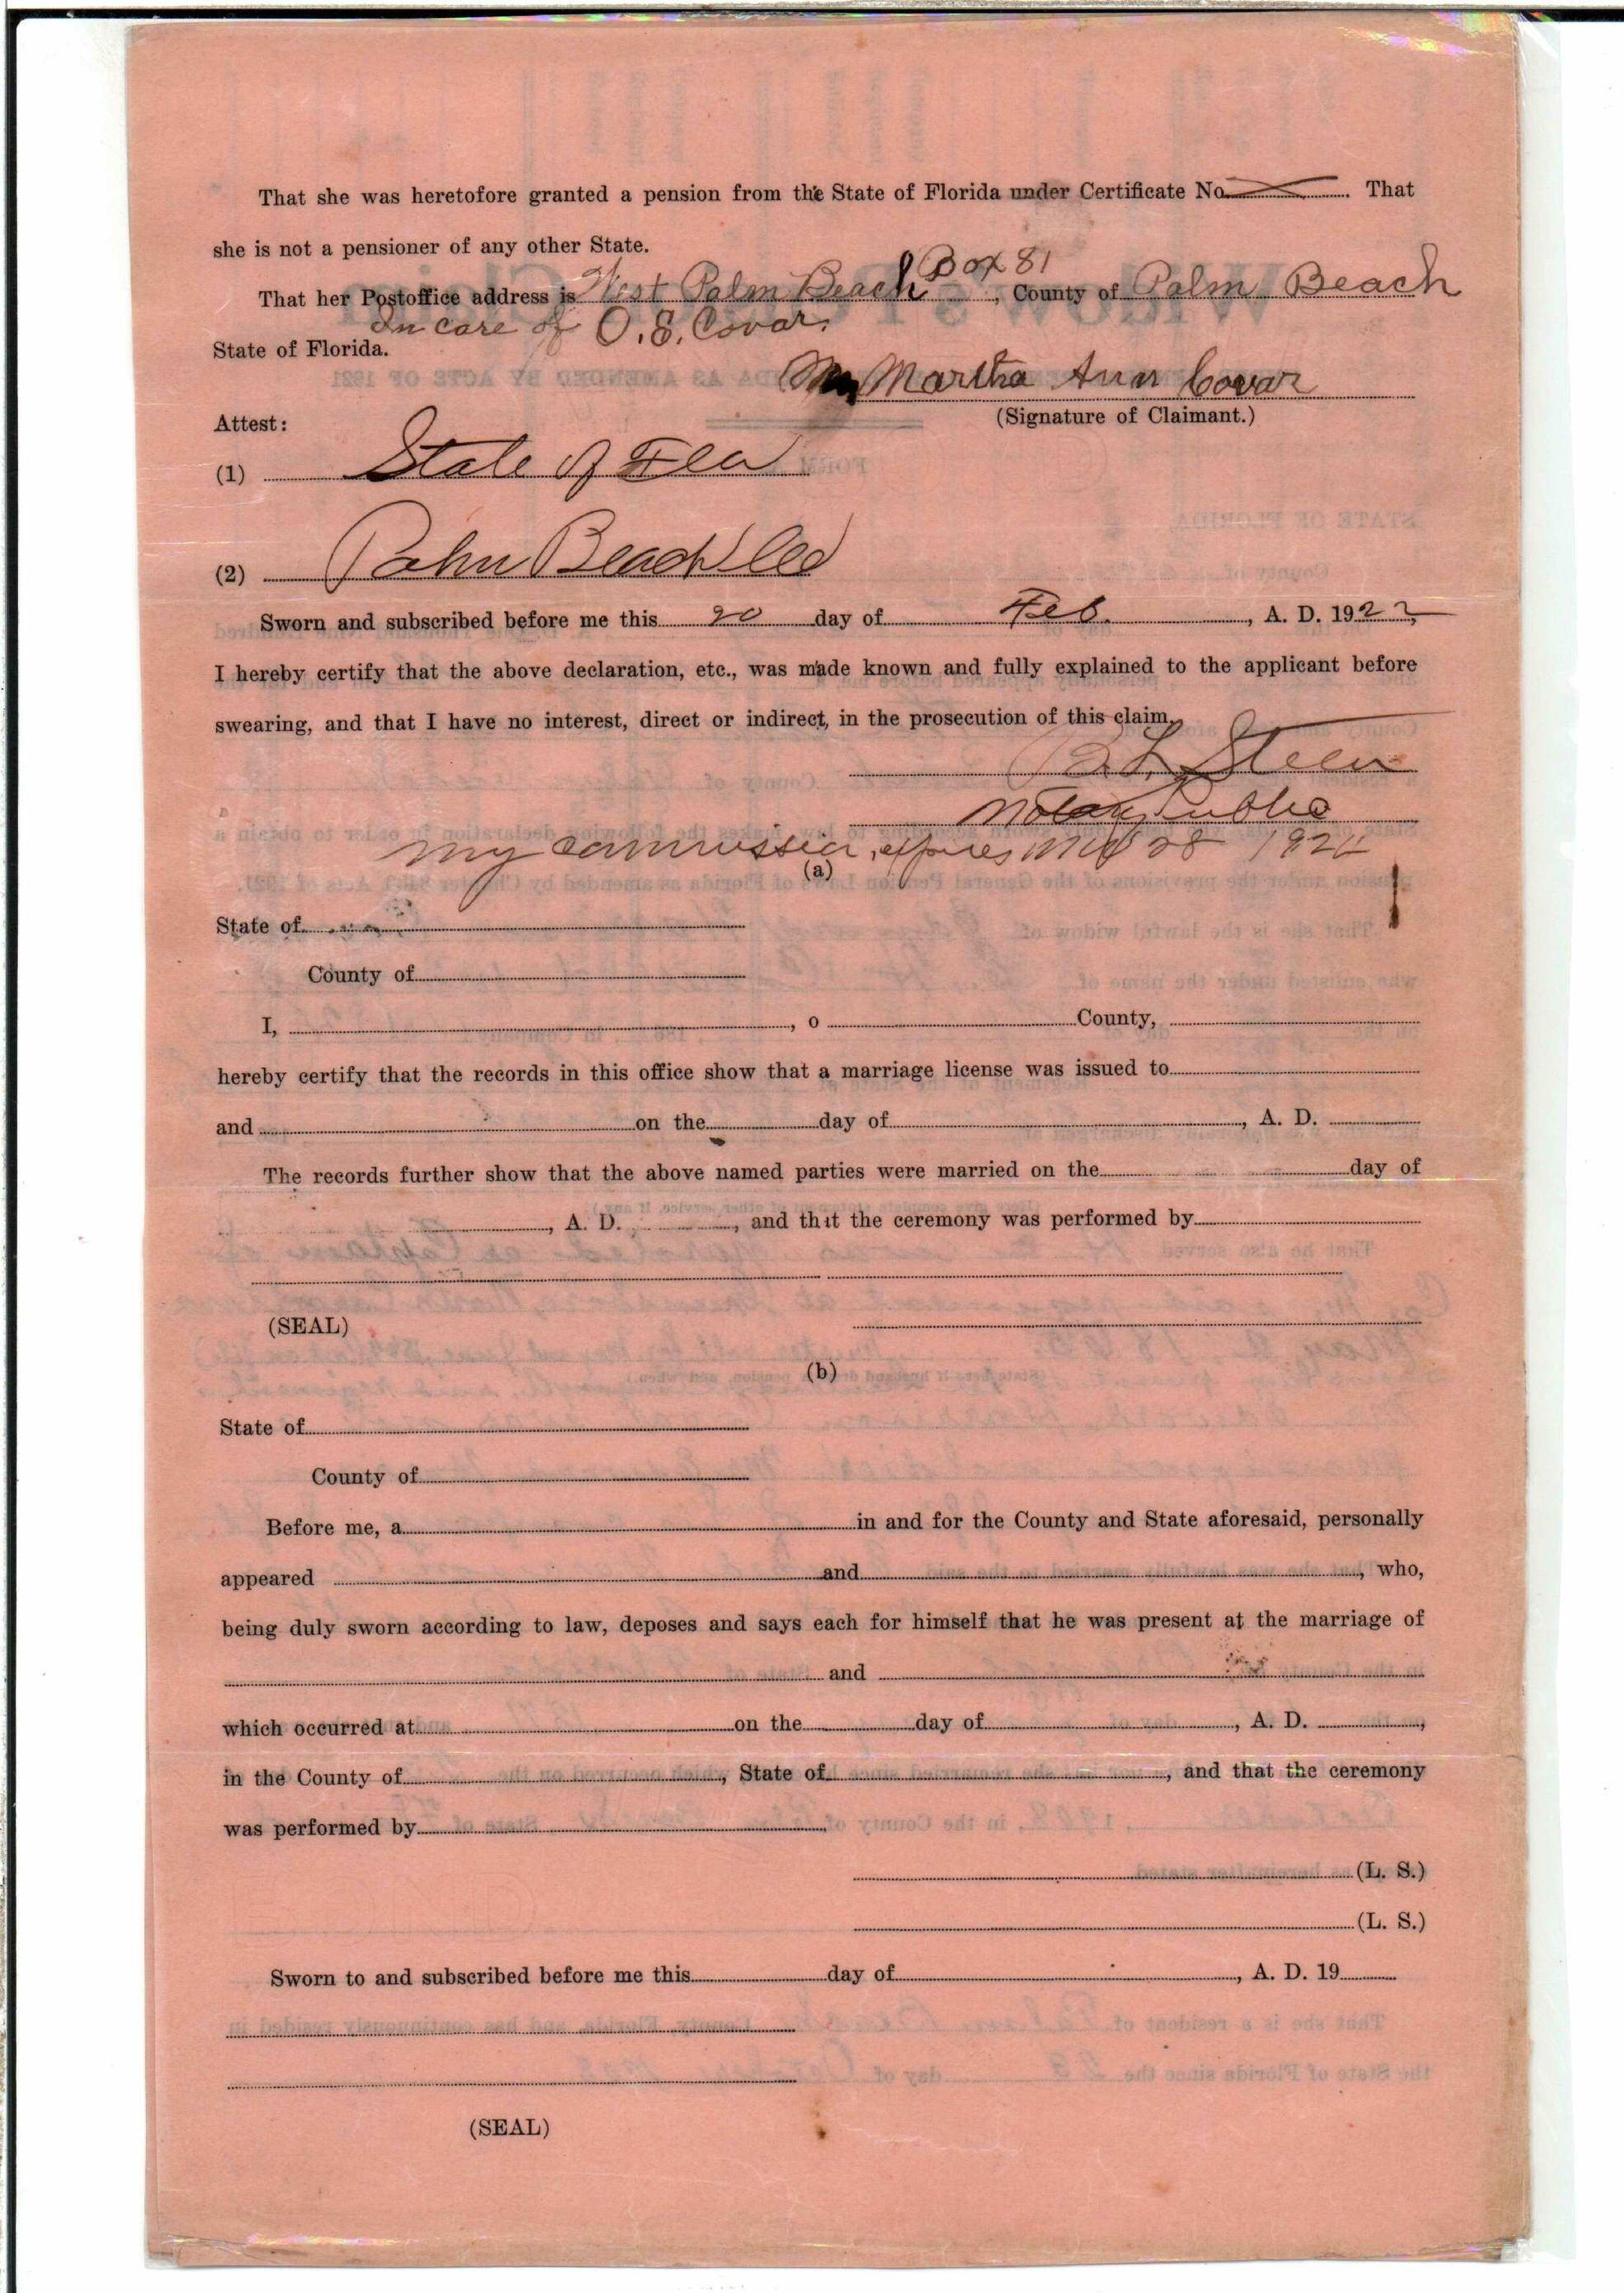 That she was heretofore granted a pension from the State of Florida under Certificate No. That
she is not a pensioner of any other State.
Box 81
That her Postoffice address is West Palm Beach, County of Palm Beach
In care of O. E. Covar.
State of Florida.
Martha Ann Covar
(Signature of Claimant.)
Attest:
(1) State of Fla
(2) Palm Beach Co
Sworn and subscribed before me this 20 day of Feb., A. D. 1922,
I hereby certify that the above declaration, etc., was made known and fully explained to the applicant before
swearing, and that I have no interest, direct or indirect, in the prosecution of this claim.
Steen
Notary Public
My commission expires 28
(a)
State of
County of
I, , o County,
hereby certify that the records in this office show that a marriage license was issued to
and on the day of , A. D.
The records further show that the above named parties were married on the day of
, A. D. , and that the ceremony was performed by
(SEAL)
(b)
State of
County of
Before me, a in and for the County and State aforesaid, personally
appeared and , who,
being duly sworn according to law, deposes and says each for himself that he was present at the marriage of
and
which occurred at on the day of , A. D. ,
in the County of , State of , and that the ceremony
was performed by
(L. S.)
(L. S.)
Sworn to and subscribed before me this day of , A. D. 19
(SEAL)